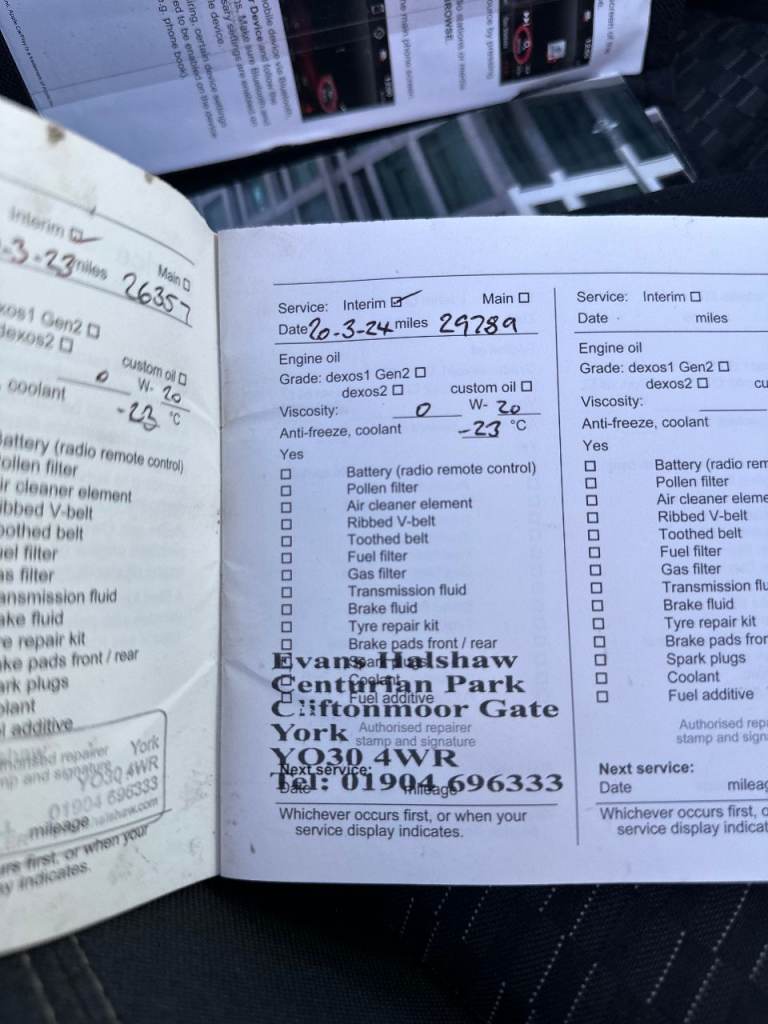 mobile device via Bluetooth,
Device and follow the
Make sure Bluetooth and
settings are enabled on
device.
certain device settings
ed to be enabled on the device
e.g. phone book)
the main phone screen.
BROWSE.
Interim ☑
-3-23 miles 26357
Main ☐
xos1 Gen2 ☐
dexos2 ☐
custom oil ☐
0 W- 20
coolant -23 °C
Battery (radio remote control)
ollen filter
ir cleaner element
ibbed V-belt
oothed belt
uel filter
as filter
ansmission fluid
ake fluid
re repair kit
ake pads front / rear
ark plugs
olant
l additive
York
YO30 4WR
01904 696333
mileage
urs first, or when your
ay indicates.
Service: Interim ☑ Main ☐
Date 20-3-24 miles 29789
Engine oil
Grade: dexos1 Gen2 ☐
dexos2 ☐ custom oil ☐
Viscosity: 0 W- 20
Anti-freeze, coolant -23 °C
Yes
☐ Battery (radio remote control)
☐ Pollen filter
☐ Air cleaner element
☐ Ribbed V-belt
☐ Toothed belt
☐ Fuel filter
☐ Gas filter
☐ Transmission fluid
☐ Brake fluid
☐ Tyre repair kit
☐ Brake pads front / rear
☐ Spark plugs
☐ Coolant
☐ Fuel additive
Evans Halshaw
Centurian Park
Cliftonmoor Gate
York
YO30 4WR
Tel: 01904 696333
Authorised repairer
stamp and signature
Next service:
Date mileage
Whichever occurs first, or when your
service display indicates.
Service: Interim ☐
Date miles
Engine oil
Grade: dexos1 Gen2 ☐
dexos2 ☐ cu
Viscosity:
Anti-freeze, coolant
Yes
☐ Battery (radio rem
☐ Pollen filter
☐ Air cleaner eleme
☐ Ribbed V-belt
☐ Toothed belt
☐ Fuel filter
☐ Gas filter
☐ Transmission flu
☐ Brake fluid
☐ Tyre repair kit
☐ Brake pads fron
☐ Spark plugs
☐ Coolant
☐ Fuel additive
Authorised rep
stamp and sign
Next service:
Date mileag
Whichever occurs first, o
service display indicat